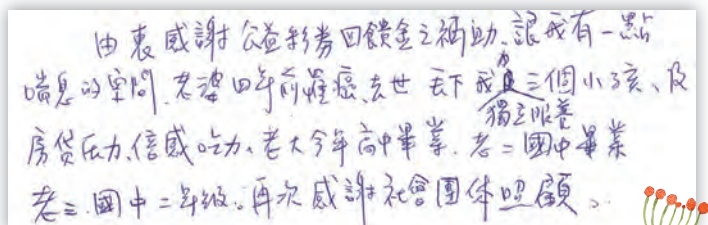 由衷感謝公益彩券回饋金之補助、讓我有一點
喘息的空間、老婆四年前罹癌、去世 丟下我與三個小孩、及
獨立照養
房貸压力、倍感吃力、老大今年高中畢業、老二國中畢業
老三、國中二年級。再次感謝社會團体照顧。